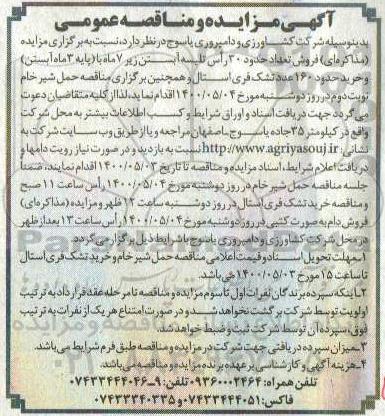 آگهی مزایده و مناقصه عمومی
بدینوسیله شرکت کشاورزی و دامپروری یاسوج در نظر دارد، نسبت به برگزاری مزایده
(مذاکره‌ای) فروش تعداد حدود ۳۰ رأس تلیسه آبستن زیر ۷ ماه با (پایه ۳ ماه آبستن)
و خرید حدود ۱۶۰ عدد تشک فری استال و همچنین برگزاری مناقصه حمل شیر خام
نوبت دوم در روز دوشنبه مورخ ۱۴۰۰/۰۵/۰۴ اقدام نماید، لذا از کلیه متقاضیان دعوت
می گردد جهت دریافت اسناد و اوراق شرایط و کسب اطلاعات بیشتر به محل شرکت
واقع در کیلومتر ۳۵ جاده یاسوج-اصفهان مراجعه و یا از طریق وب سایت شرکت به
نشانی http://www.agriyasouj.ir نسبت به بازدید و در صورت نیاز رویت دامها و
دریافت اعلام شرایط، اسناد مزایده و مناقصه تا تاریخ ۱۴۰۰/۰۵/۰۳ اقدام نمایند، ضمناً
جلسه مناقصه حمل شیر خام در روز دوشنبه مورخ ۱۴۰۰/۰۵/۰۴ رأس ساعت ۱۱ صبح
و مناقصه خرید تشک فری استال در روز دوشنبه ساعت ۱۲ ظهر و مزایده (مذاکره‌ای)
فروش دام به صورت کتبی در روز دوشنبه مورخ ۱۴۰۰/۰۵/۰۴ رأس ساعت ۱۳ بعد از ظهر
در محل شرکت کشاورزی و دامپروری یاسوج با شرایط ذیل برگزار می گردد.
۱-مهلت تحویل اسناد و قیمت اعلامی مناقصه حمل شیر خام و خرید تشک فری استال
تا ساعت ۱۵ مورخ ۱۴۰۰/۰۵/۰۳ می باشد.
۲-اینکه سپرده برندگان نفرات اول تا سوم مزایده و مناقصه تا مرحله عقد قرارداد به ترتیب
اولویت توسط شرکت برگشت نخواهد شد و در صورت امتناع هر یک از نفرات به ترتیب
فوق، سپرده آن توسط شرکت ثبت و ضبط خواهد شد.
۳-میزان سپرده دریافتی جهت شرکت در مزایده و مناقصه طبق فرم شرایط می باشد.
۴-هزینه آگهی و کارشناسی بر عهده برنده مزایده و مناقصه می باشد.
تلفن همراه: ۰۹۳۶۰۰۰۲۴۶۴ تلفن: ۹-۰۷۴۳۳۴۴۴۰۴۶
فاکس: ۰۷۴۳۳۴۴۴۰۵۱ و ۰۷۴۳۳۳۴۰۳۳۵